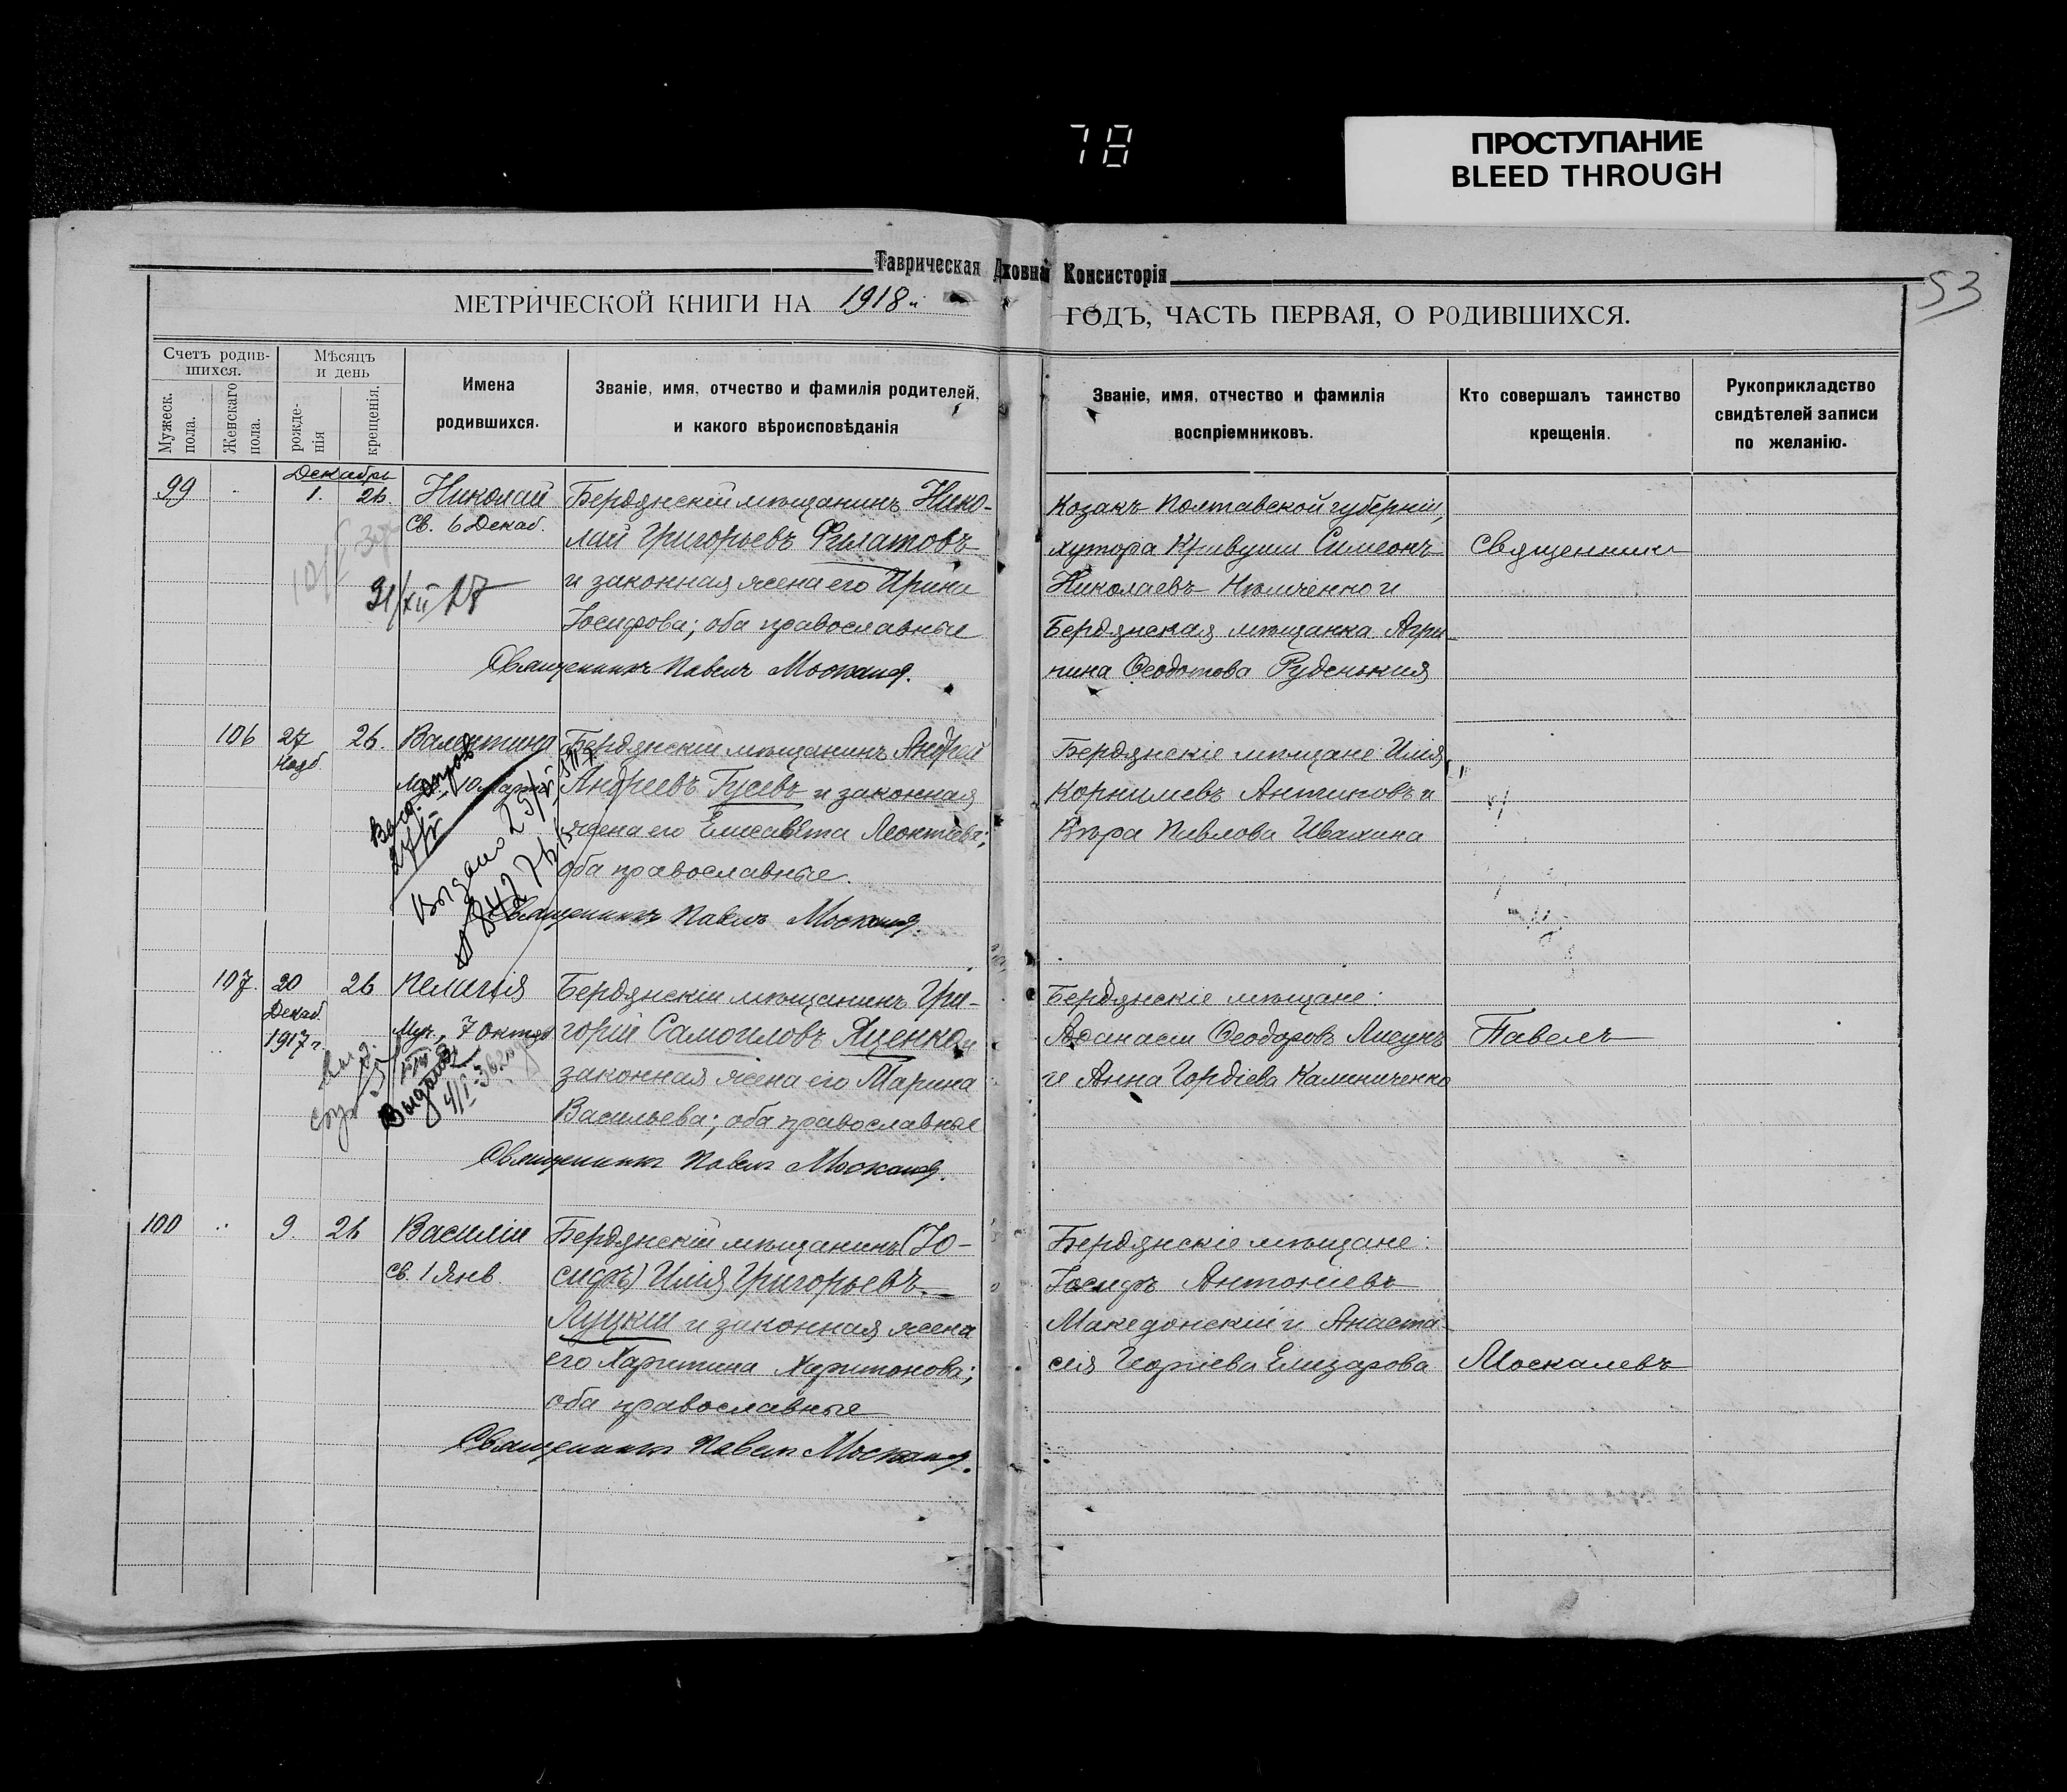 78
ПРОСТУПАНИЕ
BLEED THROUGH
Таврическая Духовная Консисторія
53
МЕТРИЧЕСКОЙ КНИГИ НА 1918 й ГОДЪ, ЧАСТЬ ПЕРВАЯ, О РОДИВШИХСЯ.
Счетъ родив-
шихся.
Мужеск. пола.
Женскаго пола.
Мѣсяцъ
и день
рожде-
нія
крещенія.
Имена
родившихся.
Званіе, имя, отчество и фамилія родителей,
и какого вѣроисповѣданія
Званіе, имя, отчество и фамилія
воспріемниковъ.
Кто совершалъ таинство
крещенія.
Рукоприкладство
свидѣтелей записи
по желанію.
Декабрь
99 1. 26. Николай
Св. 6 Декаб.
Бердянскій мѣщанинъ Нико-
лай Григорьевъ Филатовъ
и законная жена его Ирина
Іосифова; оба православные
Священникъ Павелъ
31/XII 27
Козакъ Полтавской губерніи,
хутора Кривуши Симеонъ
Николаевъ и
Бердянская мѣщанка Агри-
пина Ѳеодотова Руденькая
Священникъ
106 27 Нояб. 26. Валентина
Бердянскій мѣщанинъ Андрей
Андреевъ Гусевъ и законная
жена его Елисавета Леонтіева;
оба православные.
Священникъ Павелъ
Выдано
Бердянскіе мѣщане: Илія
Корнилевъ Антиповъ и
Вѣра Павлова Ивахина
107. 20 Декаб. 1917 г. 26 Пелагія
Муч., 7 октяб
Бердянскій мѣщанинъ Гри-
горій Самоиловъ Яценко и
законная жена его Марина
Васильева; оба православные
Священникъ Павелъ
Выдано
Бердянскіе мѣщане:
Аѳанасій Ѳеодоровъ Лисунъ
и Анна Гордіева Калиниченко
Павелъ
100 9. 26 Василій
Св. 1 Янв
Бердянскій мѣщанинъ (Іо-
сифъ) Илія Григорьевъ
Луцкій и законная жена
его Харитина Харитонова;
оба православные
Священникъ Павелъ
Бердянскіе мѣщане:
Іосифъ Антоніевъ
Македонскій и Анаста-
сія Георгіева Елизарова
Москалевъ